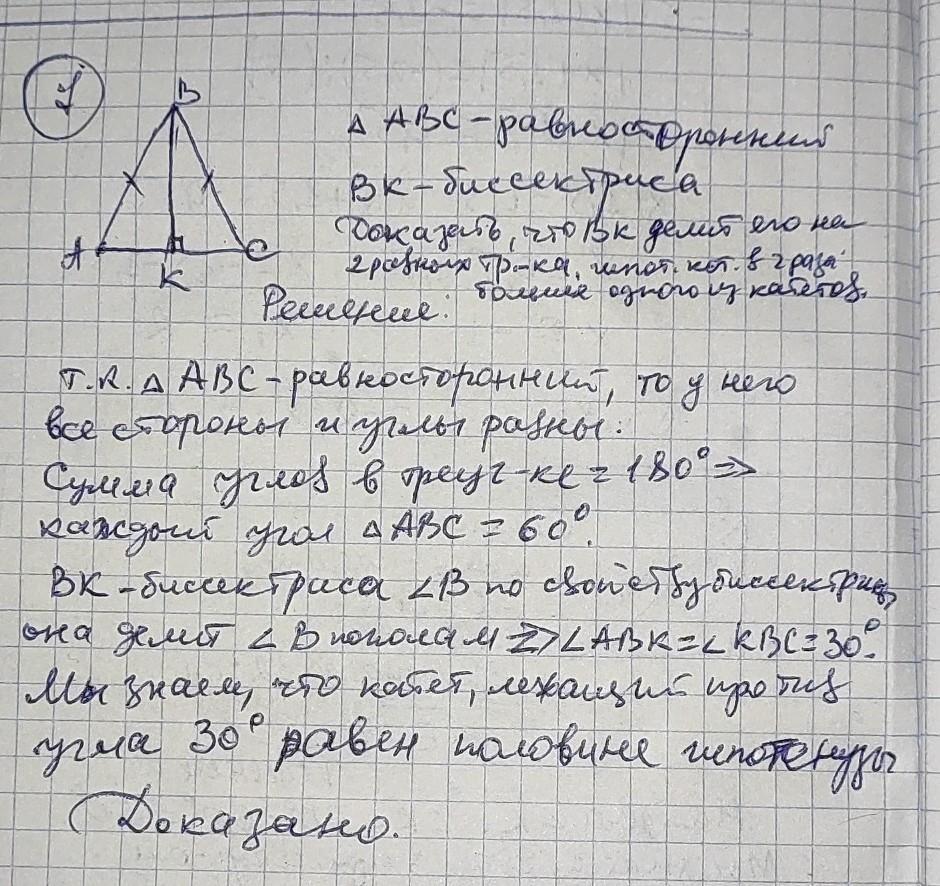 7
B
A
K
C
△ ABC - равносторонний
BK - биссектриса
Доказать, что BK делит его на
2 равных тр-ка, гипот. кот. в 2 раза
больше одного из катетов.
Решение:
Т.к. △ ABC - равносторонний, то у него
все стороны и углы равны.
Сумма углов в треуг-ке = 180° =>
каждый угол △ ABC = 60°.
BK - биссектриса ∠B по свойству биссектрис,
она делит ∠B пополам => ∠ABK = ∠KBC = 30°.
Мы знаем, что катет, лежащий против
угла 30° равен половине гипотенузы
Доказано.